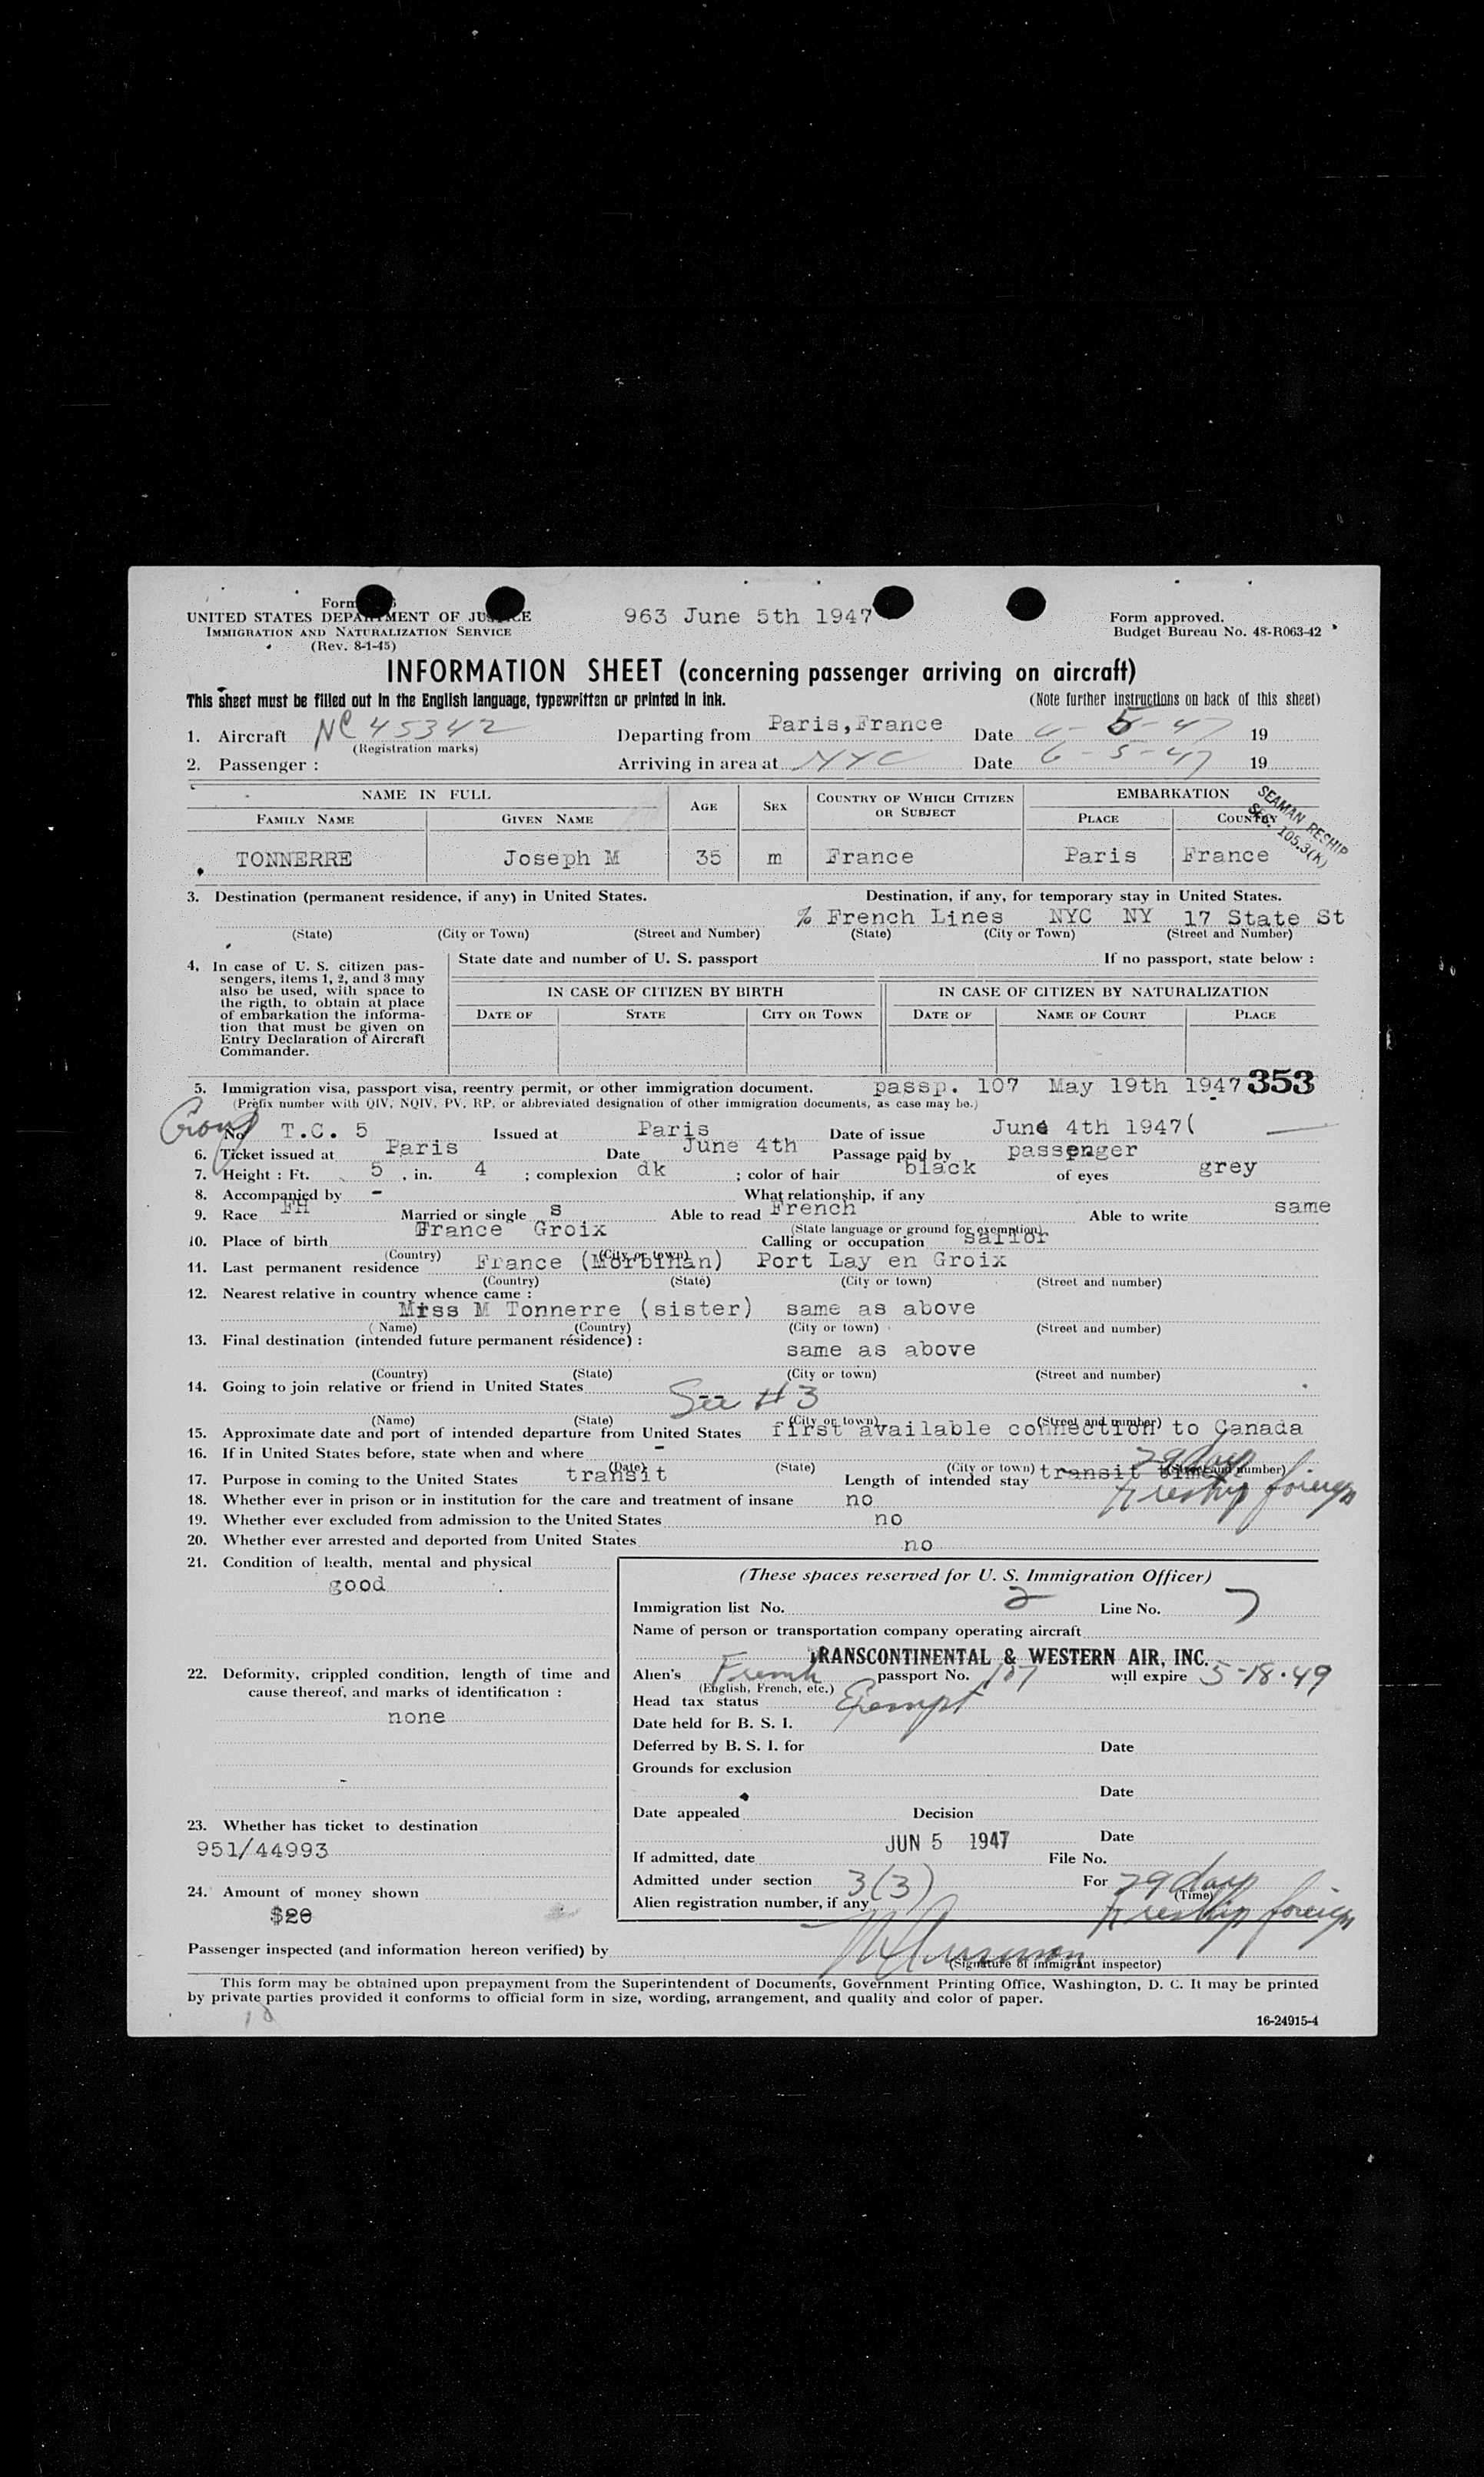 Form
UNITED STATES DEPARTMENT OF JUSTICE
IMMIGRATION AND NATURALIZATION SERVICE
(Rev. 8-1-45)
963 June 5th 1947
Form approved.
Budget Bureau No. 48-R063-42
INFORMATION SHEET (concerning passenger arriving on aircraft)
This sheet must be filled out in the English language, typewritten or printed in ink. (Note further instructions on back of this sheet)
1. Aircraft NC 45342 Departing from Paris,France Date 5-47 19
(Registration marks)
2. Passenger : Arriving in area at NYC Date 6-5-47 19
NAME IN FULL AGE SEX COUNTRY OF WHICH CITIZEN OR SUBJECT EMBARKATION
FAMILY NAME GIVEN NAME PLACE COUNTRY
SEAMAN RESHIP
SEC. 105.3(K)
TONNERRE Joseph M 35 m France Paris France
3. Destination (permanent residence, if any) in United States. Destination, if any, for temporary stay in United States.
% French Lines NYC NY 17 State St
(State) (City or Town) (Street and Number) (State) (City or Town) (Street and Number)
4. In case of U. S. citizen pas-
sengers, items 1, 2, and 3 may
also be used, with space to
the rigth, to obtain at place
of embarkation the informa-
tion that must be given on
Entry Declaration of Aircraft
Commander.
State date and number of U. S. passport If no passport, state below :
IN CASE OF CITIZEN BY BIRTH IN CASE OF CITIZEN BY NATURALIZATION
DATE OF STATE CITY OR TOWN DATE OF NAME OF COURT PLACE
5. Immigration visa, passport visa, reentry permit, or other immigration document. passp. 107 May 19th 1947 353
(Prefix number with QIV, NQIV, PV, RP, or abbreviated designation of other immigration documents, as case may be.)
Group No T.C. 5 Issued at Paris Date of issue June 4th 1947(
6. Ticket issued at Paris Date June 4th Passage paid by passenger
7. Height : Ft. 5 , in. 4 ; complexion dk ; color of hair black of eyes grey
8. Accompanied by - What relationship, if any
9. Race FH Married or single s Able to read French Able to write same
(State language or ground for exemption)
10. Place of birth France Groix Calling or occupation sailor
(Country) (City or town)
11. Last permanent residence France (Morbihan) Port Lay en Groix
(Country) (State) (City or town) (Street and number)
12. Nearest relative in country whence came :
Miss M Tonnerre (sister) same as above
(Name) (Country) (City or town) (Street and number)
13. Final destination (intended future permanent résidence) :
same as above
(Country) (State) (City or town) (Street and number)
14. Going to join relative or friend in United States See #3
(Name) (State) (City or town) (Street and number)
15. Approximate date and port of intended departure from United States first available connection to Canada
16. If in United States before, state when and where -
(Date) (State) (City or town) (Street and number)
17. Purpose in coming to the United States transit Length of intended stay transit time 29 days
to reship foreign
18. Whether ever in prison or in institution for the care and treatment of insane no
19. Whether ever excluded from admission to the United States no
20. Whether ever arrested and deported from United States no
21. Condition of health, mental and physical
good
22. Deformity, crippled condition, length of time and
cause thereof, and marks of identification :
none
23. Whether has ticket to destination
951/44993
24. Amount of money shown
$20
(These spaces reserved for U. S. Immigration Officer)
Immigration list No. 2 Line No. 7
Name of person or transportation company operating aircraft
TRANSCONTINENTAL & WESTERN AIR, INC.
Alien's French passport No. 107 will expire 5-18-49
(English, French, etc.)
Head tax status Exempt
Date held for B. S. I.
Deferred by B. S. I. for Date
Grounds for exclusion
Date
Date appealed Decision
Date
JUN 5 1947
If admitted, date File No.
Admitted under section 3(3) For 29 days
(Time)
Alien registration number, if any to reship foreign
Passenger inspected (and information hereon verified) by
(Signature of immigrant inspector)
This form may be obtained upon prepayment from the Superintendent of Documents, Government Printing Office, Washington, D. C. It may be printed
by private parties provided it conforms to official form in size, wording, arrangement, and quality and color of paper.
16-24915-4